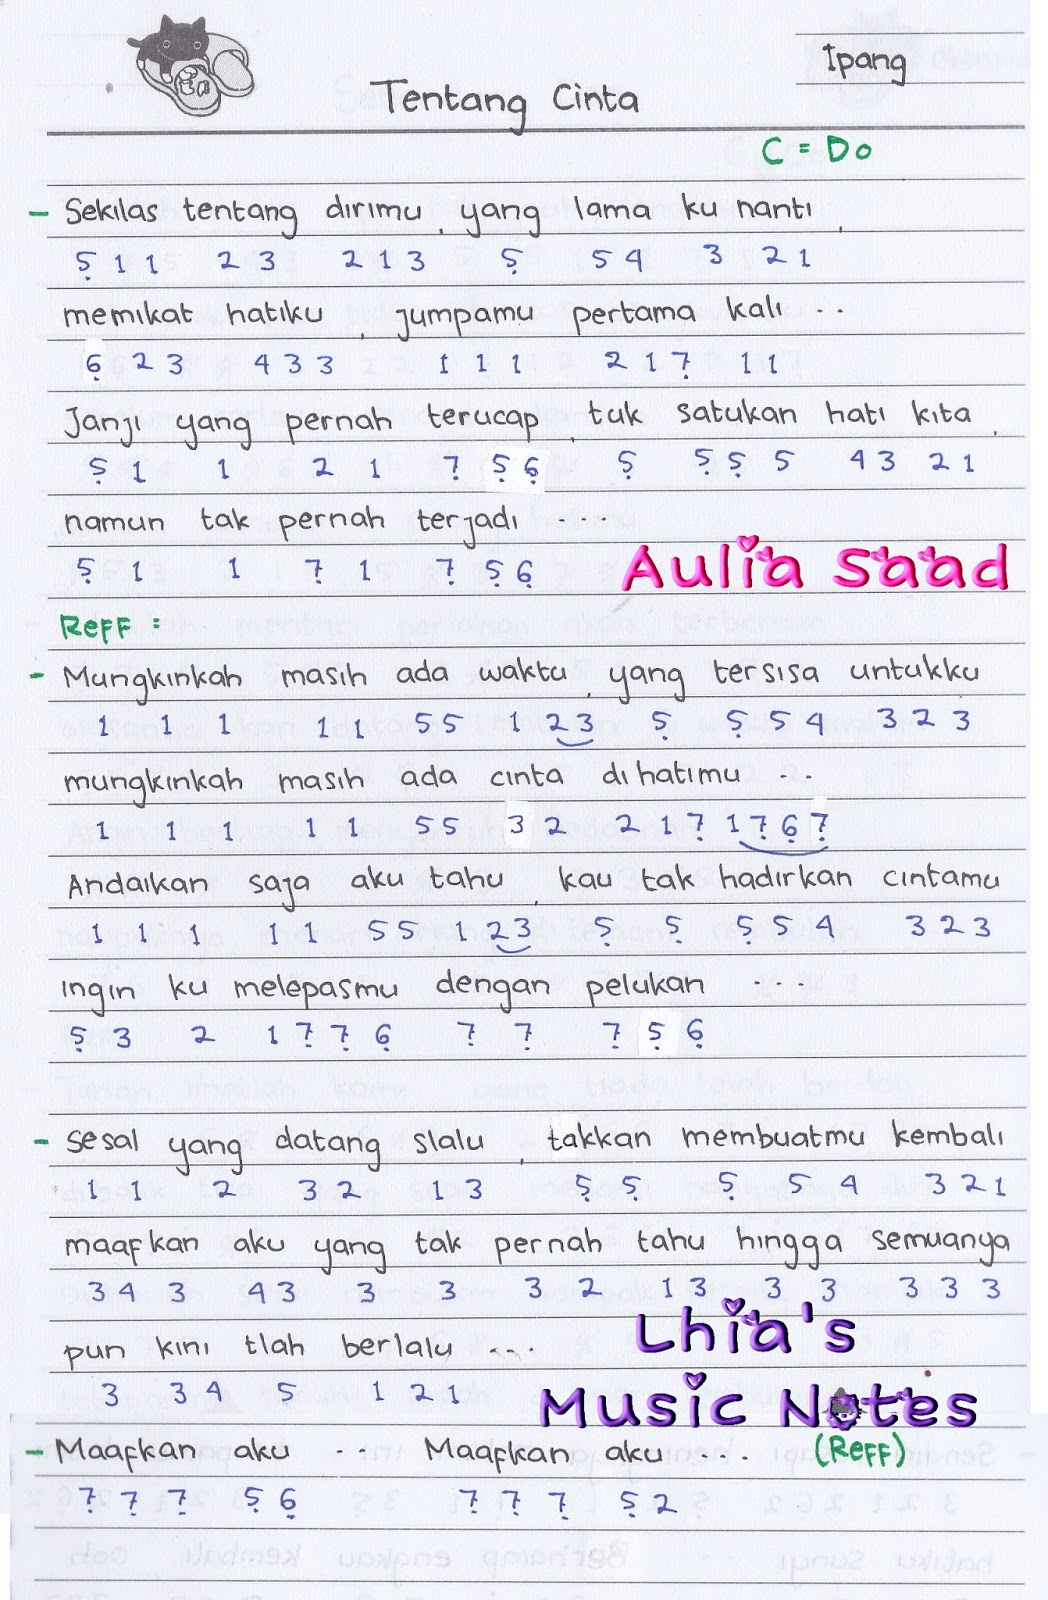 Ipang
Tentang Cinta
C = Do
- Sekilas tentang dirimu, yang lama ku nanti,
5̣ 1 1 2 3 2 1 3 5̣ 5 4 3 2 1
memikat hatiku, jumpamu pertama kali ...
6̣ 2 3 4 3 3 1 1 1 2 1 7̣ 1 1
Janji yang pernah terucap, tuk satukan hati kita,
5̣ 1 1 2 1 7̣ 5̣ 6̣ 5̣ 5̣ 5̣ 5 4 3 2 1
namun tak pernah terjadi ....
5̣ 1 1 7̣ 1 7̣ 5̣ 6̣
Aulia Saad
Reff :
- Mungkinkah masih ada waktu, yang tersisa untukku
1 1 1 1 1 5 5 1 2 3 5̣ 5̣ 5 4 3 2 3
mungkinkah masih ada cinta dihatimu ...
1 1 1 1 1 5 5 3 2 2 1 7̣ 1 7̣ 6̣ 7̣
Andaikan saja aku tahu, kau tak hadirkan cintamu
1 1 1 1 1 5 5 1 2 3 5̣ 5̣ 5̣ 5 4 3 2 3
ingin ku melepasmu dengan pelukan ....
5̣ 3 2 1 7̣ 7̣ 6̣ 7̣ 7̣ 7̣ 5̣ 6̣
- Sesal yang datang slalu, takkan membuatmu kembali
1 1 2 3 2 1 3 5̣ 5̣ 5̣ 5 4 3 2 1
maafkan aku yang tak pernah tahu hingga semuanya
3 4 3 4 3 3 3 3 2 1 3 3 3 3 3 3
pun kini tlah berlalu ....
3 3 4 5 1 2 1
Lhia's
Music Notes
- Maafkan aku ... Maafkan aku ... (Reff)
7̣ 7̣ 7̣ 5̣ 6̣ 7̣ 7̣ 7̣ 5̣ 2